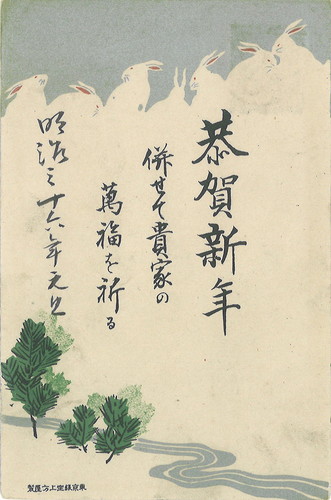 恭賀新年
併せて貴家の
萬福を祈る
明治三十六年元旦
東京銀座上方屋製